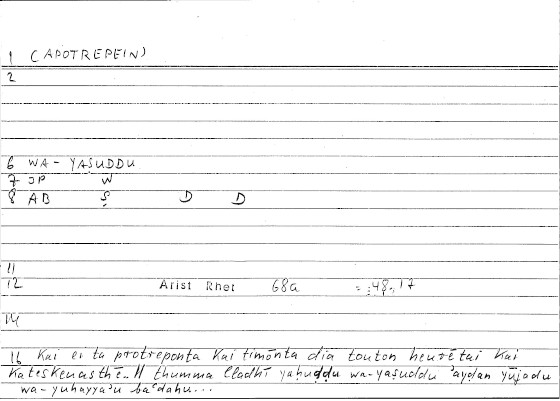 1 (APOTREPEIN)
2
6 WA-YAṢUDDU
7 JP W
8 AB Ṣ D D
11
12 Arist Rhet 68a = 48,17
14
16 Kai ei ta protreponta kai timōnta dia touton heurētai kai
kateskeuasthē.. // thumma lladhī yaḥuḍḍu wa-yaṣuddu ʾayḍan yūjadu
wa-yuhayyaʾu baʿdahu...